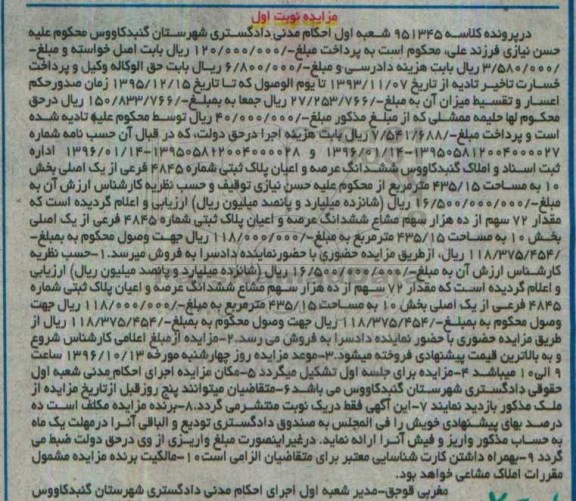 مزایده نوبت اول
درپرونده کلاسه ۹۵۱۳۴۵ شعبه اول احکام مدنی دادگستری شهرستان گنبدکاووس محکوم علیه
حسن نیازی فرزند علی، محکوم است به پرداخت مبلغ-/۱۲۰/۰۰۰/۰۰۰ ریال بابت اصل خواسته و مبلغ-
/۳/۵۸۰/۰۰۰ ریال بابت هزینه دادرسی و مبلغ-/۶/۸۰۰/۰۰۰ ریال بابت حق الوکاله وکیل و پرداخت
خسارت تاخیر تادیه از تاریخ ۱۳۹۳/۱۱/۰۷ تا یوم الوصول که تا تاریخ ۱۳۹۵/۱۲/۱۵ زمان صدورحکم
اعسار و تقسیط میزان آن به مبلغ-/۲۷/۲۵۳/۷۶۶ ریال جمعا به بمبلغ-/۱۵۰/۸۳۳/۷۶۶ ریال درحق
محکوم لها حلیمه ممشلی که از مبلغ مذکور مبلغ-/۴۰/۰۰۰/۰۰۰ ریال توسط محکوم علیه تادیه شده
است و پرداخت مبلغ-/۷/۵۴۱/۶۸۸ ریال بابت هزینه اجرا درحق دولت، که در قبال آن حسب نامه شماره
۱۳۹۶/۰۱/۱۴-۱۳۹۵۰۵۸۱۲۰۰۴۰۰۰۰۲۷ و ۱۳۹۶/۰۱/۱۴-۱۳۹۵۰۵۸۱۲۰۰۴۰۰۰۰۲۸ اداره
ثبت اسناد و املاک گنبدکاووس ششدانگ عرصه و اعیان پلاک ثبتی شماره ۴۸۴۵ فرعی از یک اصلی بخش
۱۰ به مساحت ۴۳۵/۱۵ مترمربع از محکوم علیه حسن نیازی توقیف و حسب نظریه کارشناس ارزش آن به
مبلغ-/۱۶/۵۰۰/۰۰۰/۰۰۰ ریال (شانزده میلیارد و پانصد میلیون ریال) ارزیابی و اعلام گردیده است که
مقدار ۷۲ سهم از ده هزار سهم مشاع ششدانگ عرصه و اعیان پلاک ثبتی شماره ۴۸۴۵ فرعی از یک اصلی
بخش ۱۰ به مساحت ۴۳۵/۱۵ مترمربع به مبلغ-/۱۱۸/۰۰۰/۰۰۰ ریال جهت وصول محکوم به بمبلغ-
/۱۱۸/۳۷۵/۴۵۴ ریال، ازطریق مزایده حضوری با حضورنماینده دادسرا به فروش میرسد.۱-حسب نظریه
کارشناس ارزش آن به مبلغ-/۱۶/۵۰۰/۰۰۰/۰۰۰ ریال (شانزده میلیارد و پانصد میلیون ریال) ارزیابی
و اعلام گردیده است که مقدار ۷۲ سهم از ده هزار سهم مشاع ششدانگ عرصه و اعیان پلاک ثبتی شماره
۴۸۴۵ فرعی از یک اصلی بخش ۱۰ به مساحت ۴۳۵/۱۵ مترمربع به مبلغ-/۱۱۸/۰۰۰/۰۰۰ ریال جهت
وصول محکوم به بمبلغ-/۱۱۸/۳۷۵/۴۵۴ ریال جهت وصول محکوم به بمبلغ-/۱۱۸/۳۷۵/۴۵۴ ریال از
طریق مزایده حضوری با حضور نماینده دادسرا به فروش می رسد.۲-مزایده ازمبلغ اعلامی کارشناس شروع
و به بالاترین قیمت پیشنهادی فروخته میشود.۳-موعد مزایده روز چهارشنبه مورخه ۱۳۹۶/۱۰/۱۳ ساعت
۹ الی۱۰ میباشد ۴-مزایده برای جلسه اول تشکیل میگردد ۵-مکان مزایده اجرای احکام مدنی شعبه اول
حقوقی دادگستری شهرستان گنبدکاووس می باشد.۶-متقاضیان میتوانند پنج روزقبل ازتاریخ مزایده از
ملک مذکور بازدید نمایند ۷-این آگهی فقط دریک نوبت منتشرمی گردد.۸-برنده مزایده مکلف است ده
درصد بهای پیشنهادی خویش را فی المجلس به صندوق دادگستری تودیع و الباقی آنرا درمهلت یک ماه
به حساب مذکور واریز و فیش آنرا ارائه نماید. درغیراینصورت مبلغ واریزی از وی درحق دولت ضبط می
گردد ۹-بهمراه داشتن کارت شناسایی معتبر برای متقاضیان الزامی است۱۰-مالکیت برنده مزایده مشمول
مقررات املاک مشاعی خواهد بود.
مغربی قوجق-مدیر شعبه اول اجرای احکام مدنی دادگستری شهرستان گنبدکاووس